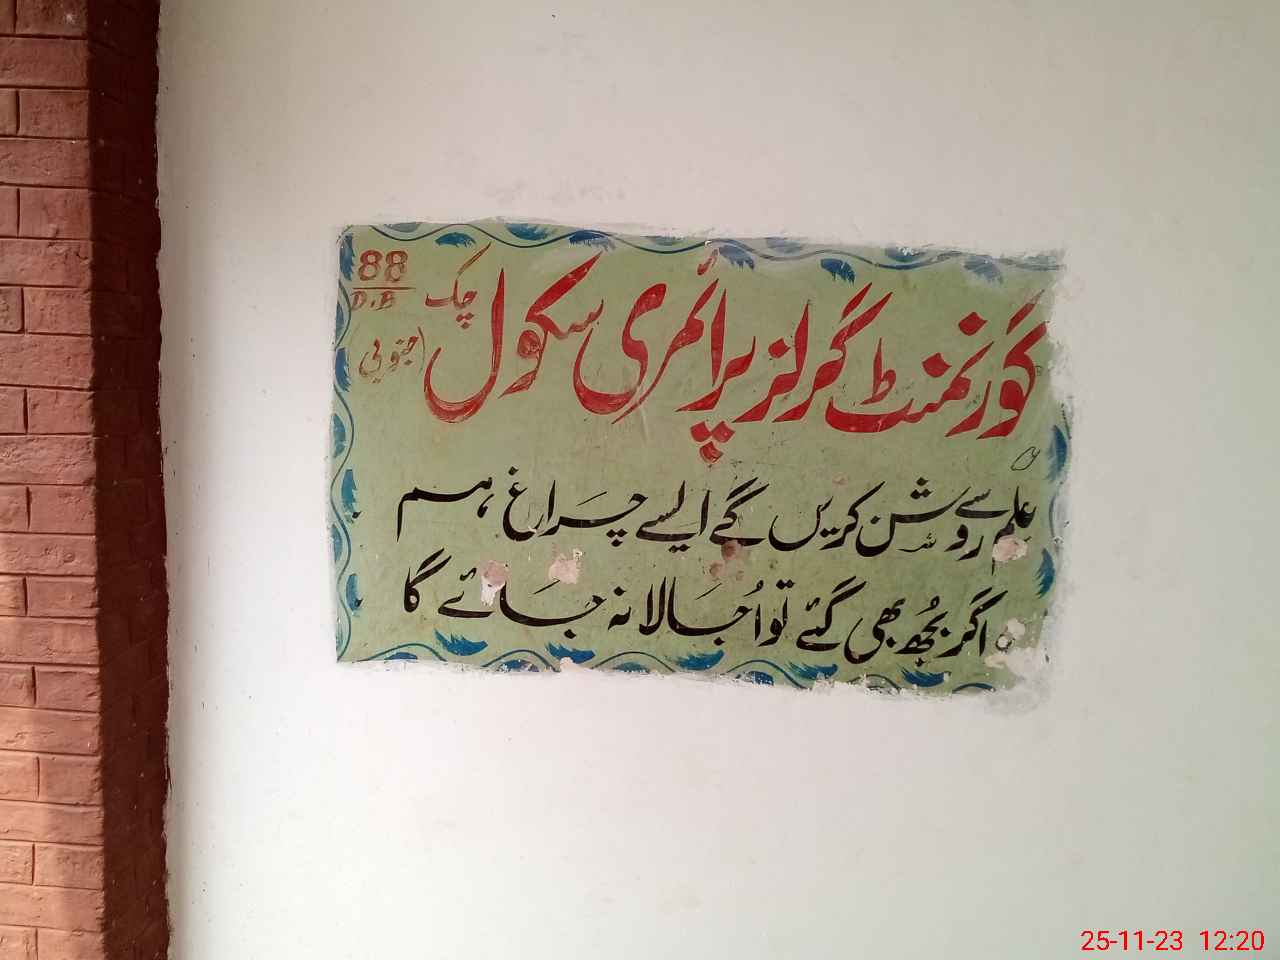 گورنمنٹ گرلز پرائمری سکول چک 88
D.B
(جنوبی)
علم سے روشن کریں گے ایسے چراغ ہم
اگر بُجھ بھی گئے تو اُجالا نہ جائے گا
25-11-23 12:20